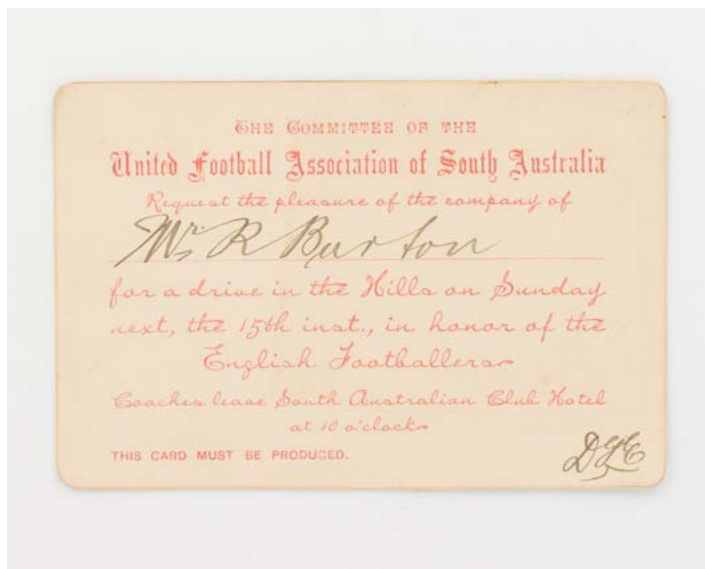 THE COMMITTEE OF THE
United Football Association of South Australia
Request the pleasure of the company of
Mr. R Burton
for a drive in the Hills on Sunday
next, the 15th inst., in honor of the
English Footballers
Coaches leave South Australian Club Hotel
at 10 o'clock
THIS CARD MUST BE PRODUCED.